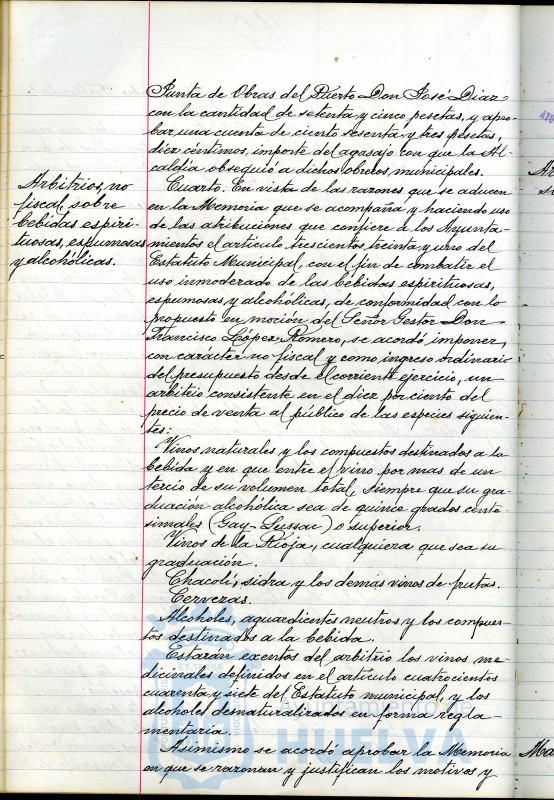 Junta de Obras del Puerto Don José Diaz
con la cantidad de setenta y cinco pesetas, y apro-
bar una cuenta de ciento sesenta y tres pesetas,
diez céntimos, importe del agasajo con que la Al-
caldía obsequió a dichos obreros municipales.
Arbitrios, no
fiscal, sobre
bebidas espiri-
tuosas, espumosas
y alcohólicas.
Cuarto. En vista de las razones que se aducen
en la Memoria que se acompaña y haciendo uso
de las atribuciones que confiere a los Ayunta-
mientos el artículo trescientos treinta y uno del
Estatuto Municipal, con el fin de combatir el
uso inmoderado de las bebidas espirituosas,
espumosas y alcohólicas, de conformidad con lo
propuesto en moción del Señor Gestor Don
Francisco López Romero, se acordó imponer,
con carácter no fiscal y como ingreso ordinario
del presupuesto desde el corriente ejercicio, un
arbitrio consistente en el diez por ciento del
precio de venta al público de las especies siguien-
tes:
Vinos naturales y los compuestos destinados a la
bebida y en que entre el vino por mas de un
tercio de su volumen total, siempre que su gra-
duación alcohólica sea de quince grados cente-
simales (Gay-Lussac) o superior.
Vinos de la Rioja, cualquiera que sea su
graduación.
Chacolí, sidra, y los demás vinos de frutas.
Cervezas.
Alcoholes, aguardientes neutros y los compues-
tos destinados a la bebida.
Estarán exentos del arbitrio los vinos me-
dicinales definidos en el artículo cuatrocientos
cuarenta y siete del Estatuto municipal, y los
alcoholes desnaturalizados en forma regla-
mentaria.
Asimismo se acordó aprobar la Memoria
en que se razonan y justifican los motivos y
Ayuntamiento de
HUELVA